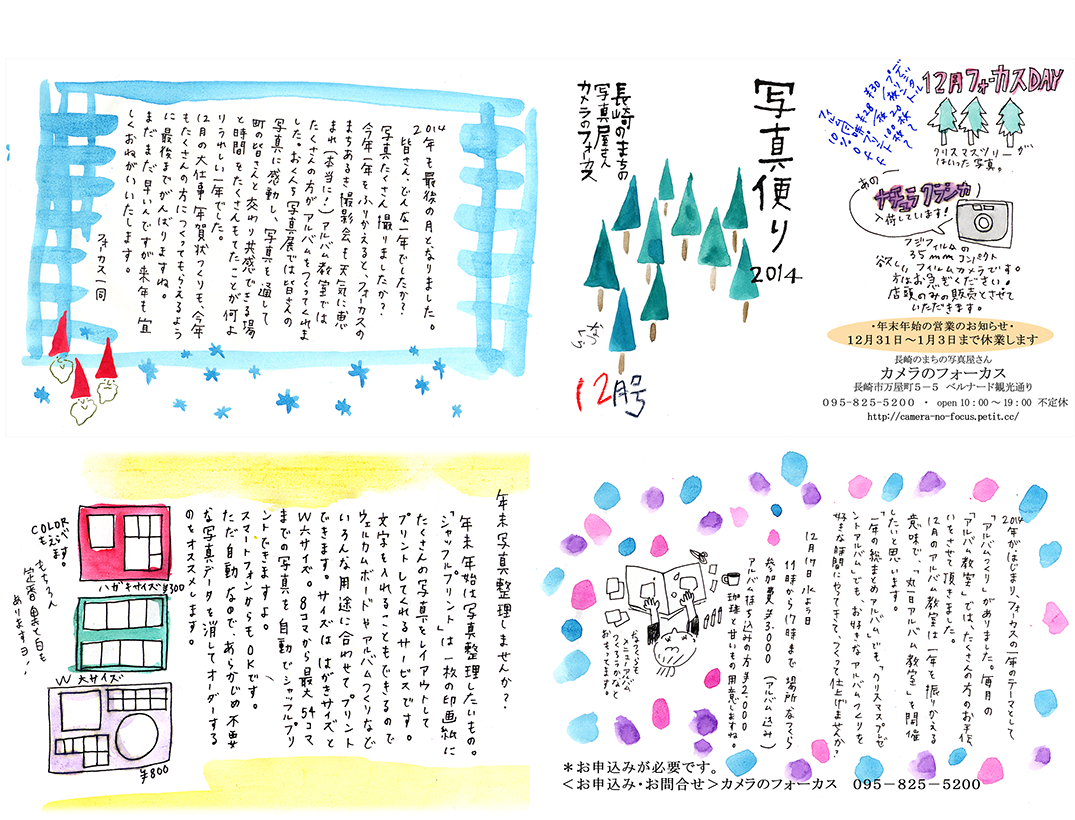 写真便り
2014
長崎のまちの
写真屋さん
カメラのフォーカス
12月号
12月フォーカスDAY
クリスマスツリーが
はいった写真。
あの
ナチュラクラシカ
入荷しています!
フジフィルムの
35mmコンパクト
フィルムカメラです。
欲しい方はお急ぎください。
店頭のみの販売とさせて
いただきます。
・年末年始の営業のお知らせ・
12月31日～1月3日まで休業します
長崎のまちの写真屋さん
カメラのフォーカス
長崎市万屋町5-5 ベルナード観光通り
095-825-5200 ・ open 10:00～19:00 不定休
http://camera-no-focus.petit.cc/
2014年も最後の月となりました。
皆さん、どんな一年でしたか?
写真たくさん撮りましたか?
今年一年をふりかえると、フォーカスの
まちあるき撮影会も天気に恵
まれ(本当に!)アルバム教室では
たくさんの方がアルバムをつくってくれま
した。おくんち写真展では皆さんの
写真に感動し、写真を通して
町の皆さんと交わり共感できる場
と時間をたくさんもてたことが何よ
りうれしい一年でした。
12月の大仕事「年賀状つくり」も、今年
もたくさんの方につくってもらえるよう
に最後までがんばりますね。
まだまだ早いんですが来年も宜
しくおねがいいたします。
フォーカス一同
年末写真整理しませんか?
年末年始は写真整理したいもの。
「シャッフルプリント」は一枚の印画紙に
たくさんの写真をレイアウトして
プリントしてくれるサービスです。
文字を入れることもできるので
ウェルカムボードやアルバムつくりなど
いろんな用途に合わせてプリント
できます。サイズははがきサイズと
W六サイズ。8コマから最大54コマ
までの写真を自動でシャッフルプリ
ントできますよ。
スマートフォンからもOKです。
ただ自動なので、あらかじめ不要
な写真データを消してオーダーする
のをオススメします。
COLOR
もえらべ
ます。
もちろん
定番黒と白も
ありますヨ!
ハガキサイズ¥300
W六サイズ
¥800
2014年がはじまり、フォーカスの一年のテーマとして
「アルバムつくり」がありました。毎月の
「アルバム教室」では、たくさんの方のお手伝
いをさせて頂きました。
12月のアルバム教室は一年を振りかえる
意味で、「丸一日アルバム教室」を開催
したいと思います。
「一年の総まとめアルバム」でも「クリスマスプレゼ
ントアルバム」でも、お好きなアルバムつくりを
好きな時間にやってきて、つくって仕上げませんか?
12月17日水よう日
11時から17時まで 場所なつくら
参加費¥3,000(アルバム込み)
アルバム持ち込みの方¥2,000
珈琲と甘いもの用意しますね。
なつくらでも
メニューアルバム
つくろうかなと
おもってます。
＊お申込みが必要です。
＜お申込み・お問合せ＞カメラのフォーカス 095-825-5200